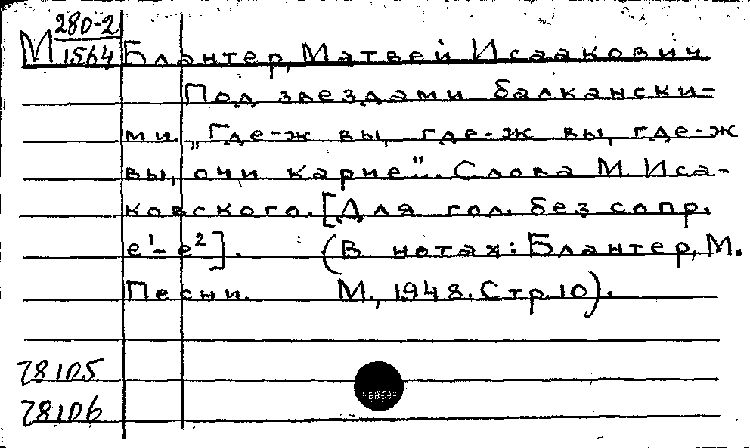 М 280-2
1564
Блантер, Матвей Исаакович
Под звездами балкански-
ми. „Где-ж вы, где-ж вы, где-ж
вы, очи карие". Слова М. Иса-
ковского. [Для гол. без сопр.
e¹ - e²]. (В нотах: Блантер, М.
Песни. М., 1948. Стр. 10).
78105
78106